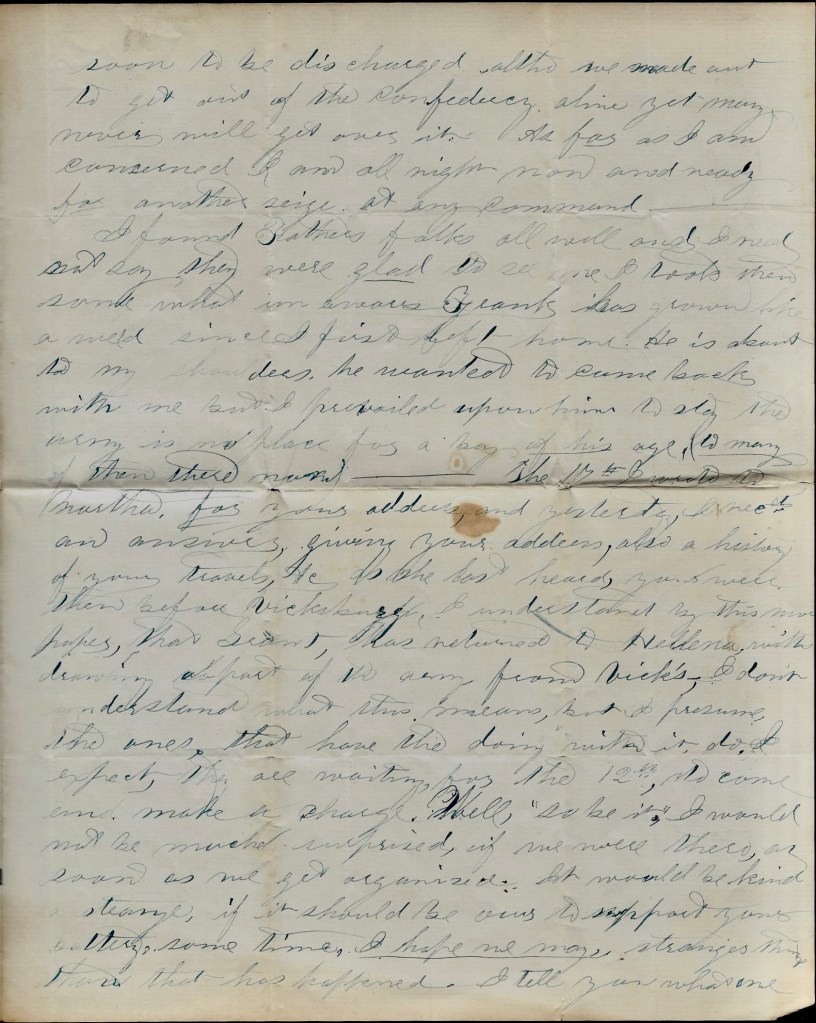 soon to be discharged altho we made out
to get out of the Confedercy. alive yet many
never will get over it. As far as I am
concerned I am all right now and ready
for another seize at any command.
I found Fathers folks all well and I need
not say they were glad to see me I took them
some what un awares Frank has grown like
a weed since I first left home. He is about
to my shoulders. he wanted to come back
with me but I prevailed upon him to stay the
army is no place for a boy of his age, (to many
of them there now) The 17th I wrote to
Martha, for your address, and yesterdy, I recd
an answer, giving your address, also a history
of your travels, &c as she last heard, you were
then before Vicksburg. I understand by this mor
paper, that Grant, has returned to Hellena, with
drawing a part of the army from Vick's, I don't
understand what this means, but I presume,
the ones, that have the doing with it do. I
expect, they are waiting for the 12th, to come
and make a charge. Well, "so be it", I would
not be much surprised, if we were there, as
soon as we get organised. It would be kind
a strange, if it should be ours to support your
battery. some time, I hope we may, stranger thing
than that has happened. I tell you what one